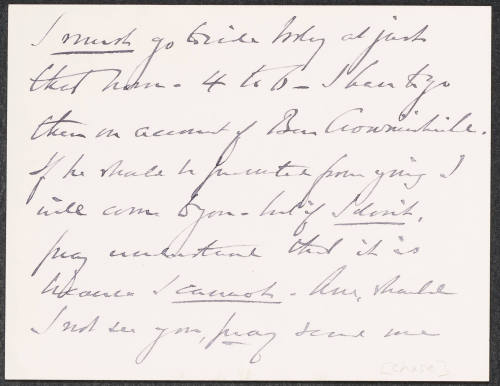 I must go to ride today at just
that hour - 4 to 6 - I have to go
then on account of Ben Crowninshield.
If he should be prevented from going I
will come to you - but if I don't,
pray understand that it is
because I cannot. And, should
I not see you, pray send me
[Chase]